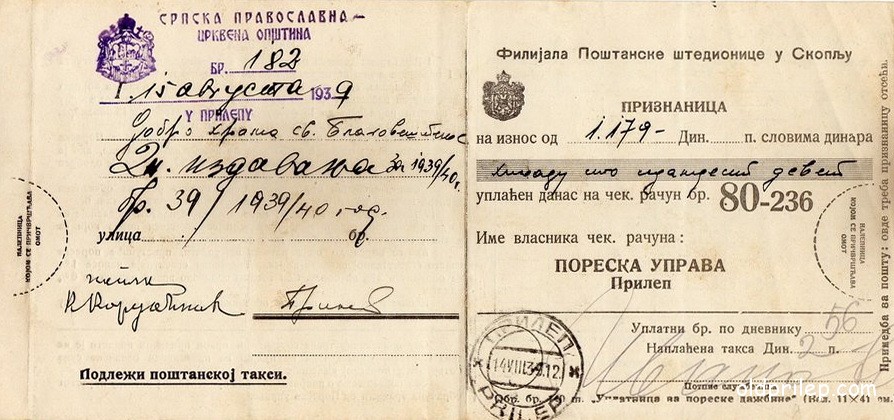 СРПСКА ПРАВОСЛАВНА
ЦРКВЕНА ОПШТИНА
БР. 182
15 августа 1939
У ПРИЛЕПУ
Добро храма св. Благовештење
Зн. издавања за 1939/40 г.
бр. 39 / 1939/40 год.
улица бр.
Прилеп
НАЛЕПНИЦА
КОЈОМ СЕ ПРИЧВРШЋАВА
ОМОТ
Подлежи поштанској такси.
Филијала Поштанске штедионице у Скопљу
ПРИЗНАНИЦА
на износ од 1.179- Дин. п. словима динара
хиљаду сто седамдесет девет
уплаћен данас на чек. рачун бр. 80-236
Име власника чек. рачуна:
ПОРЕСКА УПРАВА
Прилеп
Уплатни бр. по дневнику 56
Наплаћена такса Дин. 2 п.
Потпис службеника
Обр. бр. "Уплатница за пореске дажбине" (Вел. 11×4) см
ПРИЛЕП
14 VIII 39 12
PRILEP
НАЛЕПНИЦА
КОЈОМ СЕ ПРИЧВРШЋАВА
ОМОТ
Примедба за пошту: овде треба признаницу отсећи.
oldprilep.com